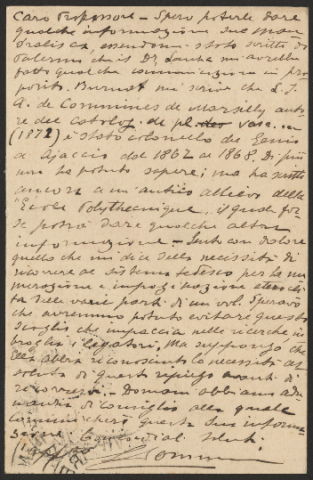 Caro Professore – Spero poterle dare
qualche informazione sue
essendomi stato scritto da
Palermo che il Dr Lanza mi avrebbe
fatto qualche comunicazione in pro
posito. Burnat mi scrive che L. J.
A. de Commines de Marsilly, auto
re del Catalog. de pl. vasc.
(1872) è stato colonello del Genio
a Ajaccio dal 1867 al 1868. Di più
non ha potuto sapere; ma ha scritto
ancora a un antico allievo della
École Polythecnique, il quale for
se potrà dare qualche altra
informazione – Sento con dolore
quello che mi dice della necessità di
ricorrere al sistema tedesco per la nu
merazione e
delle varie parti di un vol. Speravo
che avremmo potuto evitare questo
scoglio che impaccia nelle ricerche, im
broglia i legatori, ma suppongo che
Ella abbia riconosciuto la necessità as
soluta di questo ripiego avanti di
ricorrervi. Domani abbiamo adu
nanza di consiglio alla quale
comunicherò questa sua informa
zione. Cordiali saluti.
Sommier